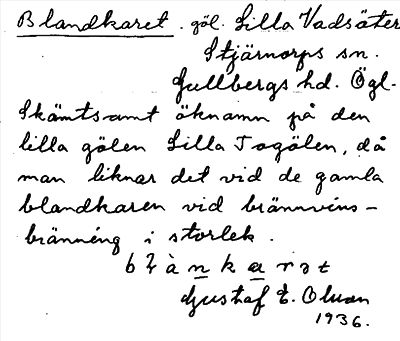 Blandkaret. göl. Lilla Vadsäter
Stjärnorps sn.
Gullbergs hd. Ögl.
Skämtsamt öknamn på den
lilla gölen Lilla Togölen, då
man liknar det vid de gamla
blandkaren vid brännvins-
bränning i storlek.
Gustaf E. Olson
1936.